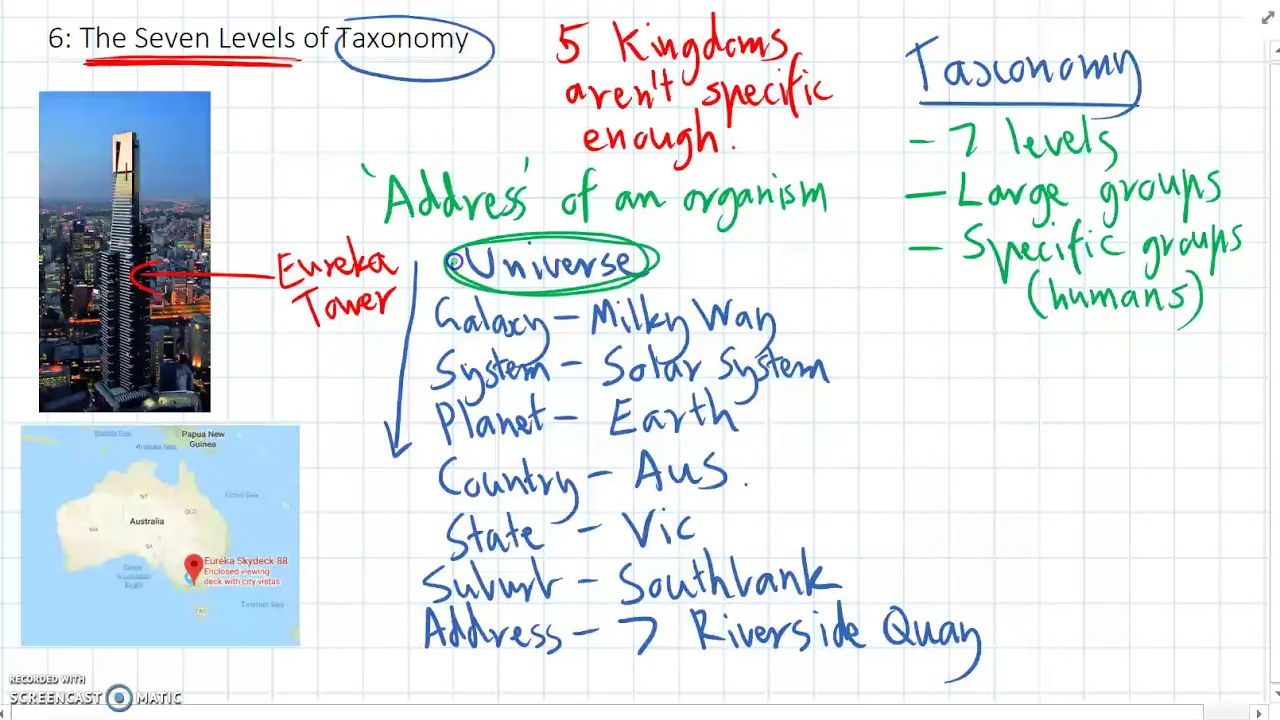 6: The Seven Levels of Taxonomy
5 Kingdoms
aren't specific
enough!
Taxonomy
- 7 levels
- Large groups
- Specific groups
(humans)
'Address' of an organism
Eureka
Tower
Universe
Galaxy - Milky Way
System - Solar System
Planet - Earth
Country - Aus.
State - Vic
Suburb - Southbank
Address - 7 Riverside Quay
Papua New
Guinea
NT
QLD
Australia
WA
SA
Eureka Skydeck 88
Enclosed viewing
deck with city vistas
TAS
Tasman Sea
RECORDED WITH
SCREENCAST MATIC